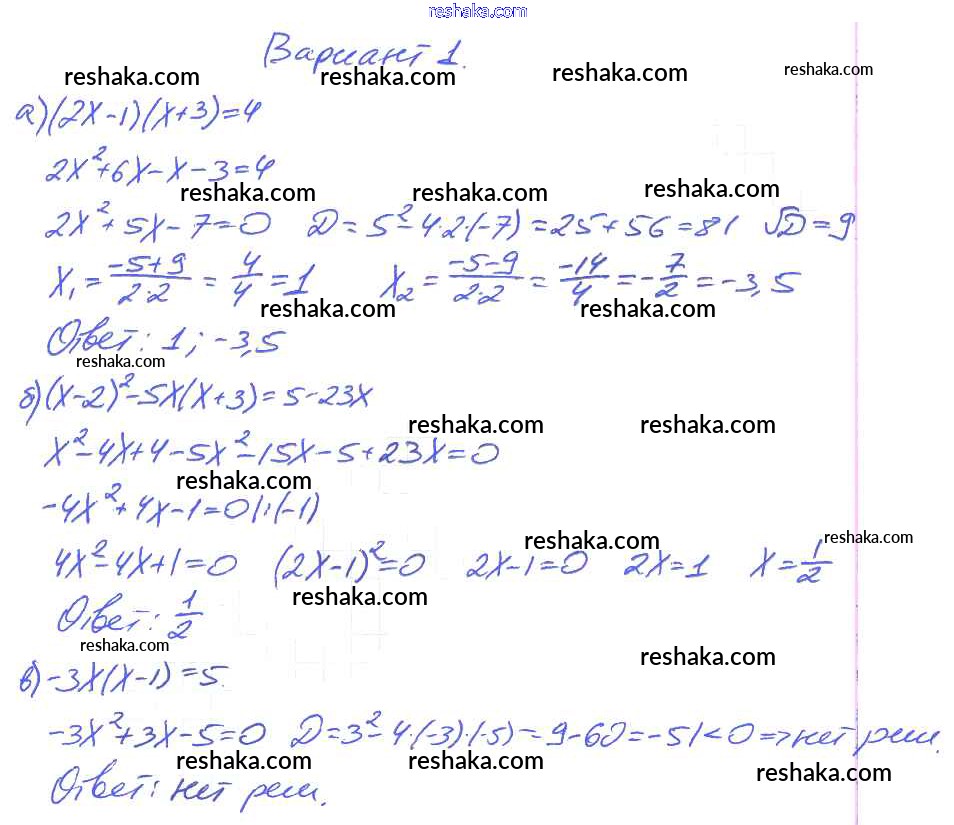 reshaka.com
Вариант 1.
reshaka.com reshaka.com reshaka.com reshaka.com
а) (2x-1)(x+3)=4
2x²+6x-x-3=4
reshaka.com reshaka.com reshaka.com
2x²+5x-7=0 D=5²-4·2·(-7)=25+56=81 √D=9
x₁=(-5+9)/(2·2)=4/4=1 x₂=(-5-9)/(2·2)=-14/4=-7/2=-3,5
reshaka.com reshaka.com
Ответ: 1; -3,5
reshaka.com
б) (x-2)²-5x(x+3)=5-23x
reshaka.com reshaka.com
x²-4x+4-5x²-15x-5+23x=0
reshaka.com
-4x²+4x-1=0|:(-1)
reshaka.com reshaka.com
4x²-4x+1=0 (2x-1)²=0 2x-1=0 2x=1 x=1/2
reshaka.com
Ответ: 1/2
reshaka.com reshaka.com
в) -3x(x-1)=5.
-3x²+3x-5=0 D=3²-4·(-3)·(-5)=9-60=-51<0=>нет реш.
reshaka.com reshaka.com reshaka.com
Ответ: нет реш.